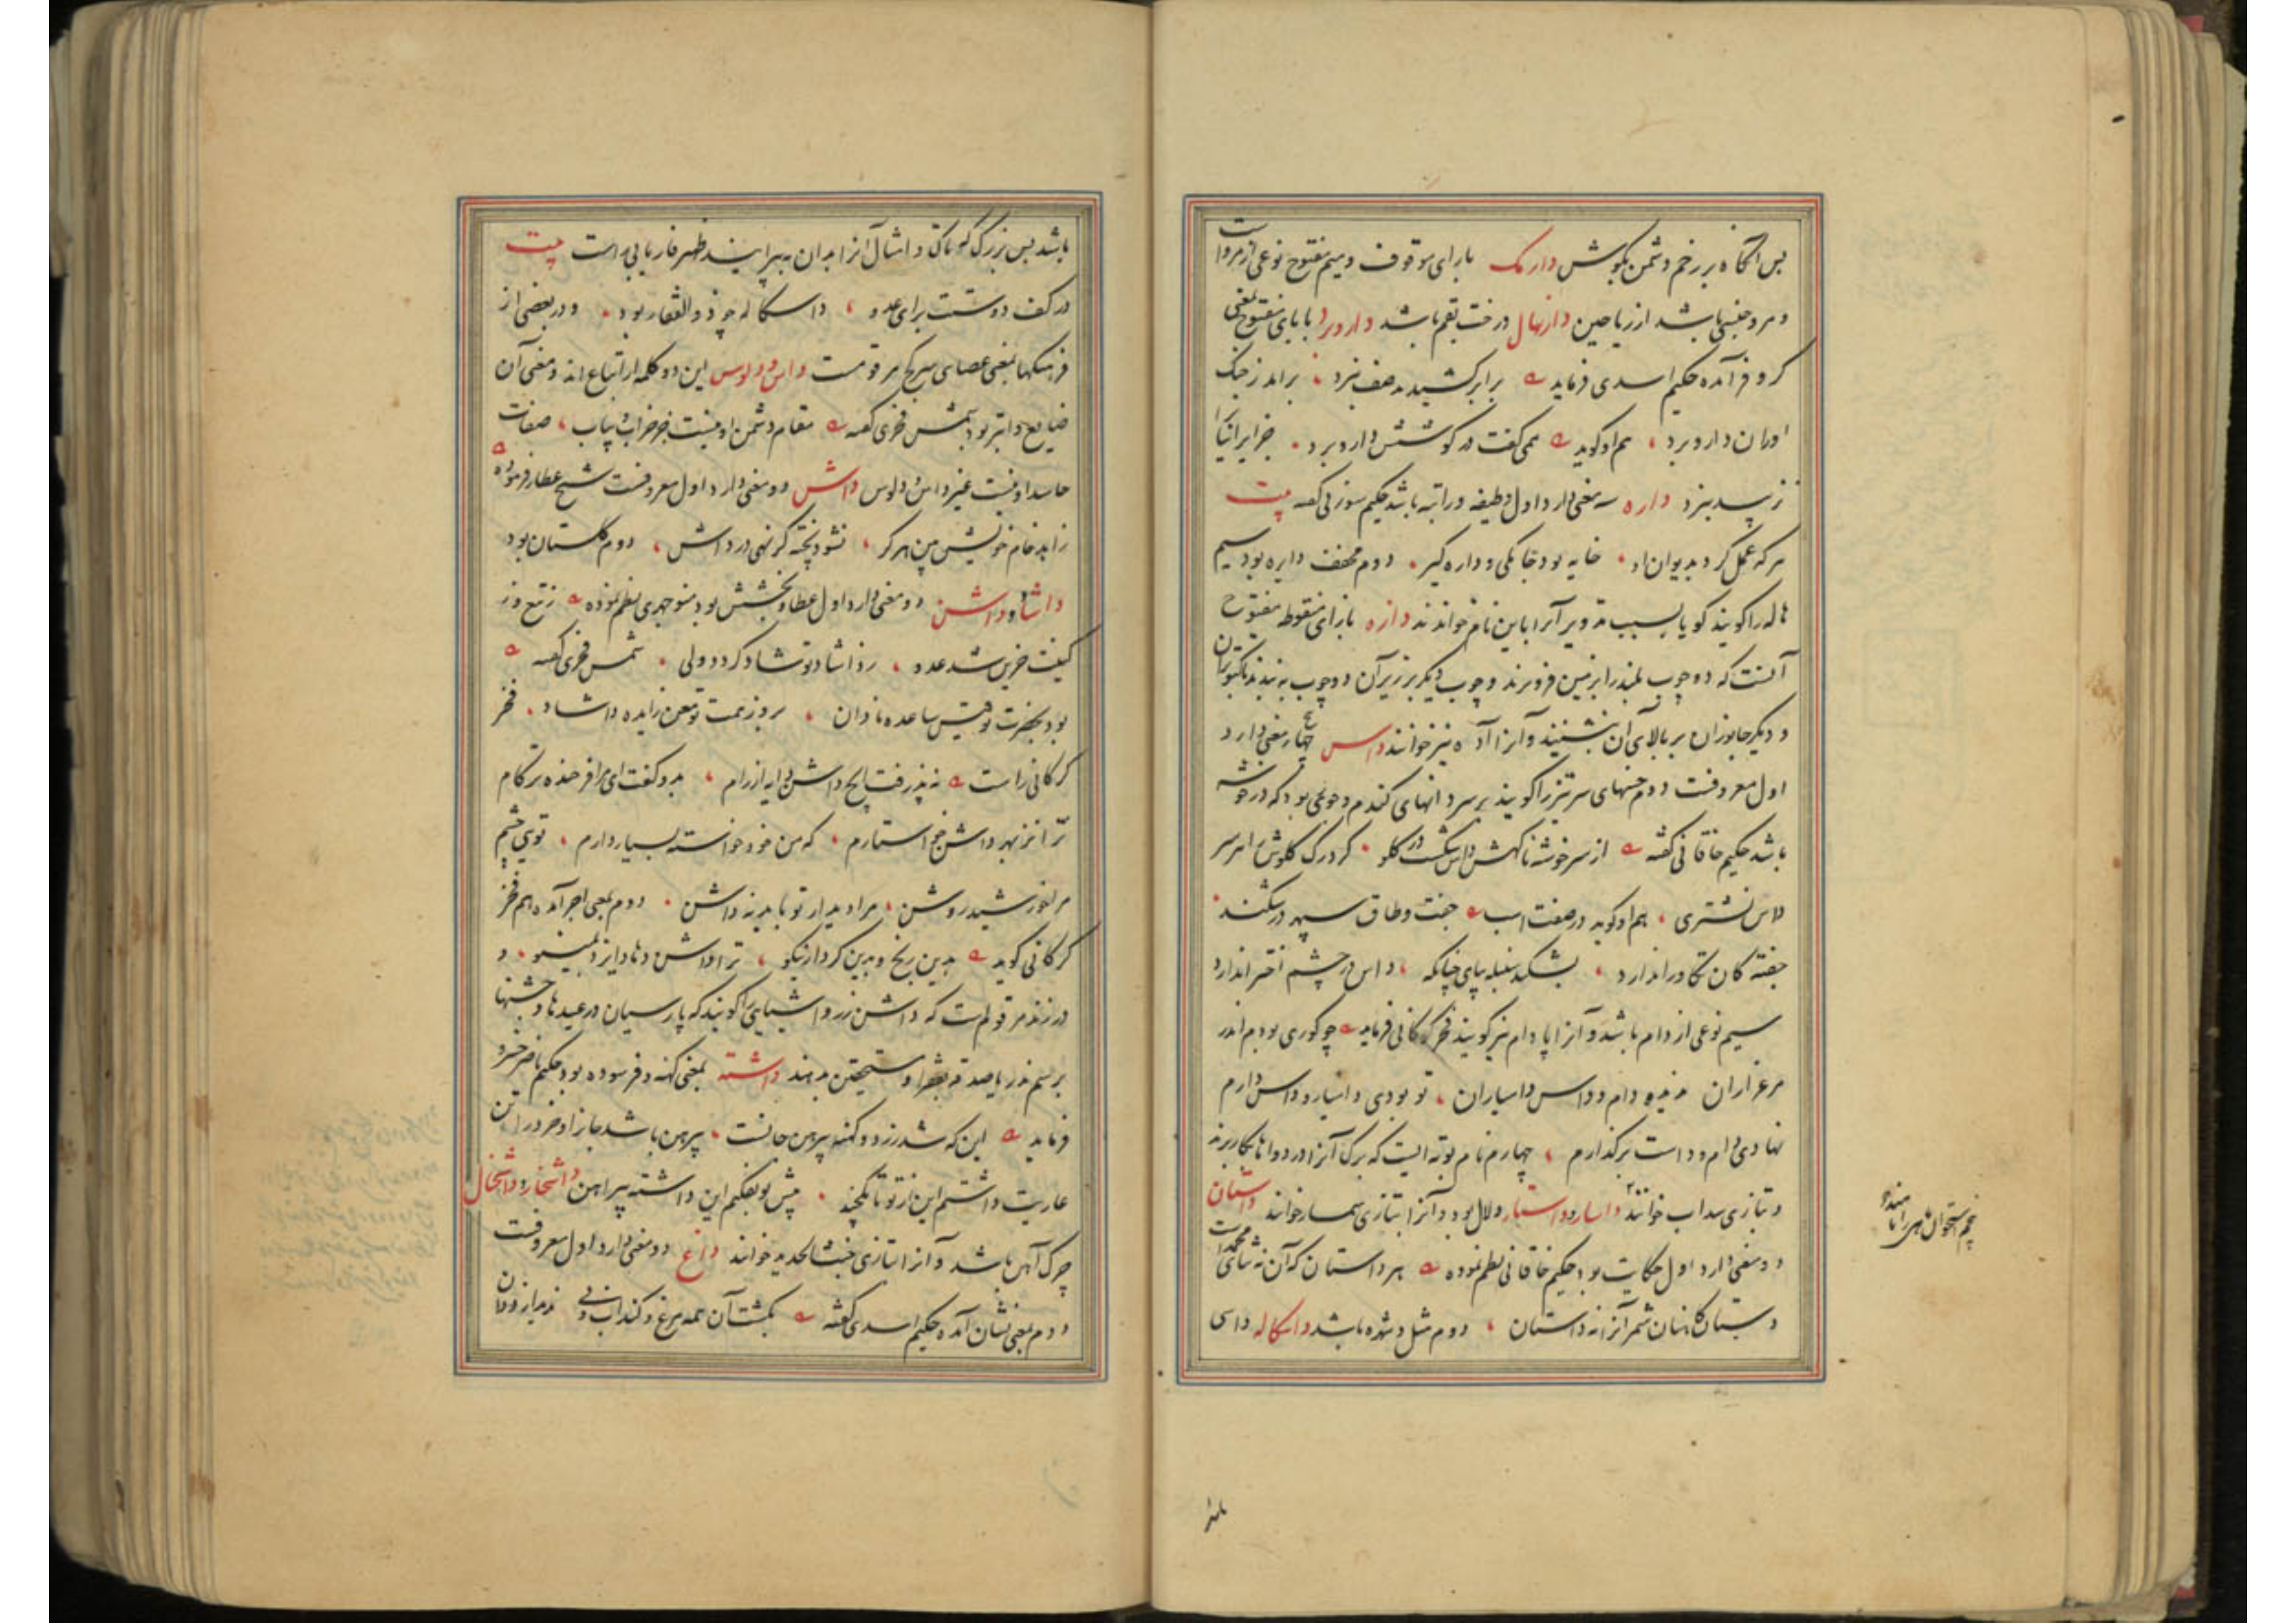 پس آنگاه بر زخم دشمن بکوش دارمک بارای موقوف و میم مفتوح نوعی از مرو است
و مرو جنسی باشد از ریاحین دارنهال درخت بقم باشد داروبرد با بای مفتوح بمعنی
کر و فر آمده حکیم اسدی فرماید برابر کشیدند صف نبرد براند ز جنگ
اوران داروبرد هم او گوید همی گفت در کوشش داروبرد جز ایرانیان را
نزیبد نبرد داره سه معنی دارد اول وظیفه و راتبه باشد حکیم سوزنی گفته بیت
هر که عمل کرد بدیوان او خایه بود جامگی و داره گیر دوم مخفف دایره بود سیم
هاله را گویند گویا بسبب تدویر آنرا باین نام خوانده‌اند دازه بازای منقوطه مفتوح
آنست که دو چوب بلند را بر زمین فرو برند و چوب دیگر بر زبر آن دو چوب به بندند تا کبوتران
و دیگر جانوران بر بالای آن بنشینند و آنرا آده نیز خوانند داس چهار معنی دارد
اول معروفست دوم خسهای سرتیز را گویند بر سر دانهای گندم و جو می بود که در خوشه
باشد حکیم خاقانی گفته از سر خوشه ناگهش داس شکست در گلو کرد رگ گلوش را سر
داس نشتری هم او گوید در صفت اسب جفت و طاق سپهر درشکند
جفته کان تکاور اندازد بشکند سنبله بپای چنانکه داس در چشم اختر اندازد
سیم نوعی از دام باشد و آنرا پادام نیز گویند فخر گرگانی فرماید چو گوری بودم اندر
مرغزاران ندیده دام و داس دامیاران تو بودی دامیار و داس دارم
نهادی دام و داست بر گذارم چهارم نام بوته‌ایست که برگ آنرا در دواها بکار برند
و بتازی سداب خوانند داسار و داستار دلال بود و آنرا بتازی سمسار خوانند داستان
دو معنی دارد اول حکایت بود حکیم خاقانی نظم نموده هر داستان که آن نه ثنای محمدست
دستان کاهنان شمر آنرا نه داستان دوم مثل و شهره باشد داسکاله داسی
باشد بس بزرگ که تاک و امثال آنرا بدان به پیرایند ظهیر فاریابی راست بیت
در کف دوستت برای عدو داسکاله چو ذوالفقار بود و در بعضی از
فرهنگها بمعنی عصای سر کج مرقومست داس و دلوس این دو کلمه از اتباع‌اند و معنی آن
ضایع و ابتر بود شمس فخری گفته مقام دشمن او نیست جز خراب و یباب صفات
حاسد او نیست غیر داس و دلوس داش دو معنی دارد اول معروفست شیخ عطار فرموده
زاهد خام خویش بین هرگز نشود پخته گر نهی در داش دوم گلستان بود
داشاد و داشن دو معنی دارد اول عطا و بخشش بود منوچهری نظم نموده ز تیغ
گیتت حزین شد عدو ز داشاد تو شاد گردد ولی شمس فخری گفته
بود بحضرت توفیق ساعده نازان بروز همت تو معن زایده داشاد فخر
گرگانی راست نپذرفت ایچ داشن دایه از رام بدو گفت ای هم افرخنده بر کام
ترا از بهر داشن می نخواستارم که من خود خواسته بسیار دارم تویی چشم
مرا خورشید روشن مرا دیدار تو باید نه داشن دوم بمعنی اجر آمده هم فخر
گرگانی گوید بدین رنج و بدین کردار نیکو ترا داشن دهاد ایزد بمینو و
در زند مرقومست که داشن زر و اشیایی را گویند که پارسیان در عیدها و جشنها
برسم نذر یا صدقه بفقرا و مستحقین بدهند داشته بمعنی کهنه و فرسوده بود حکیم ناصر خسرو
فرماید این که شد زرد و کهنه پیرهن جانست پیرهن باشد جانرا و خرد را تن
عاریت داشتم این از تو تا یکچند پیش تو بفکنم این داشته پیراهن داشخار و داشخال
چرک آهن باشد و آنرا بتازی خبث الحدید خوانند داغ دو معنی دارد اول معروفست
دوم بمعنی نشان آمده حکیم اسدی گفته بگشت آن همه مرغ و کند آب و نی ندید از ددان